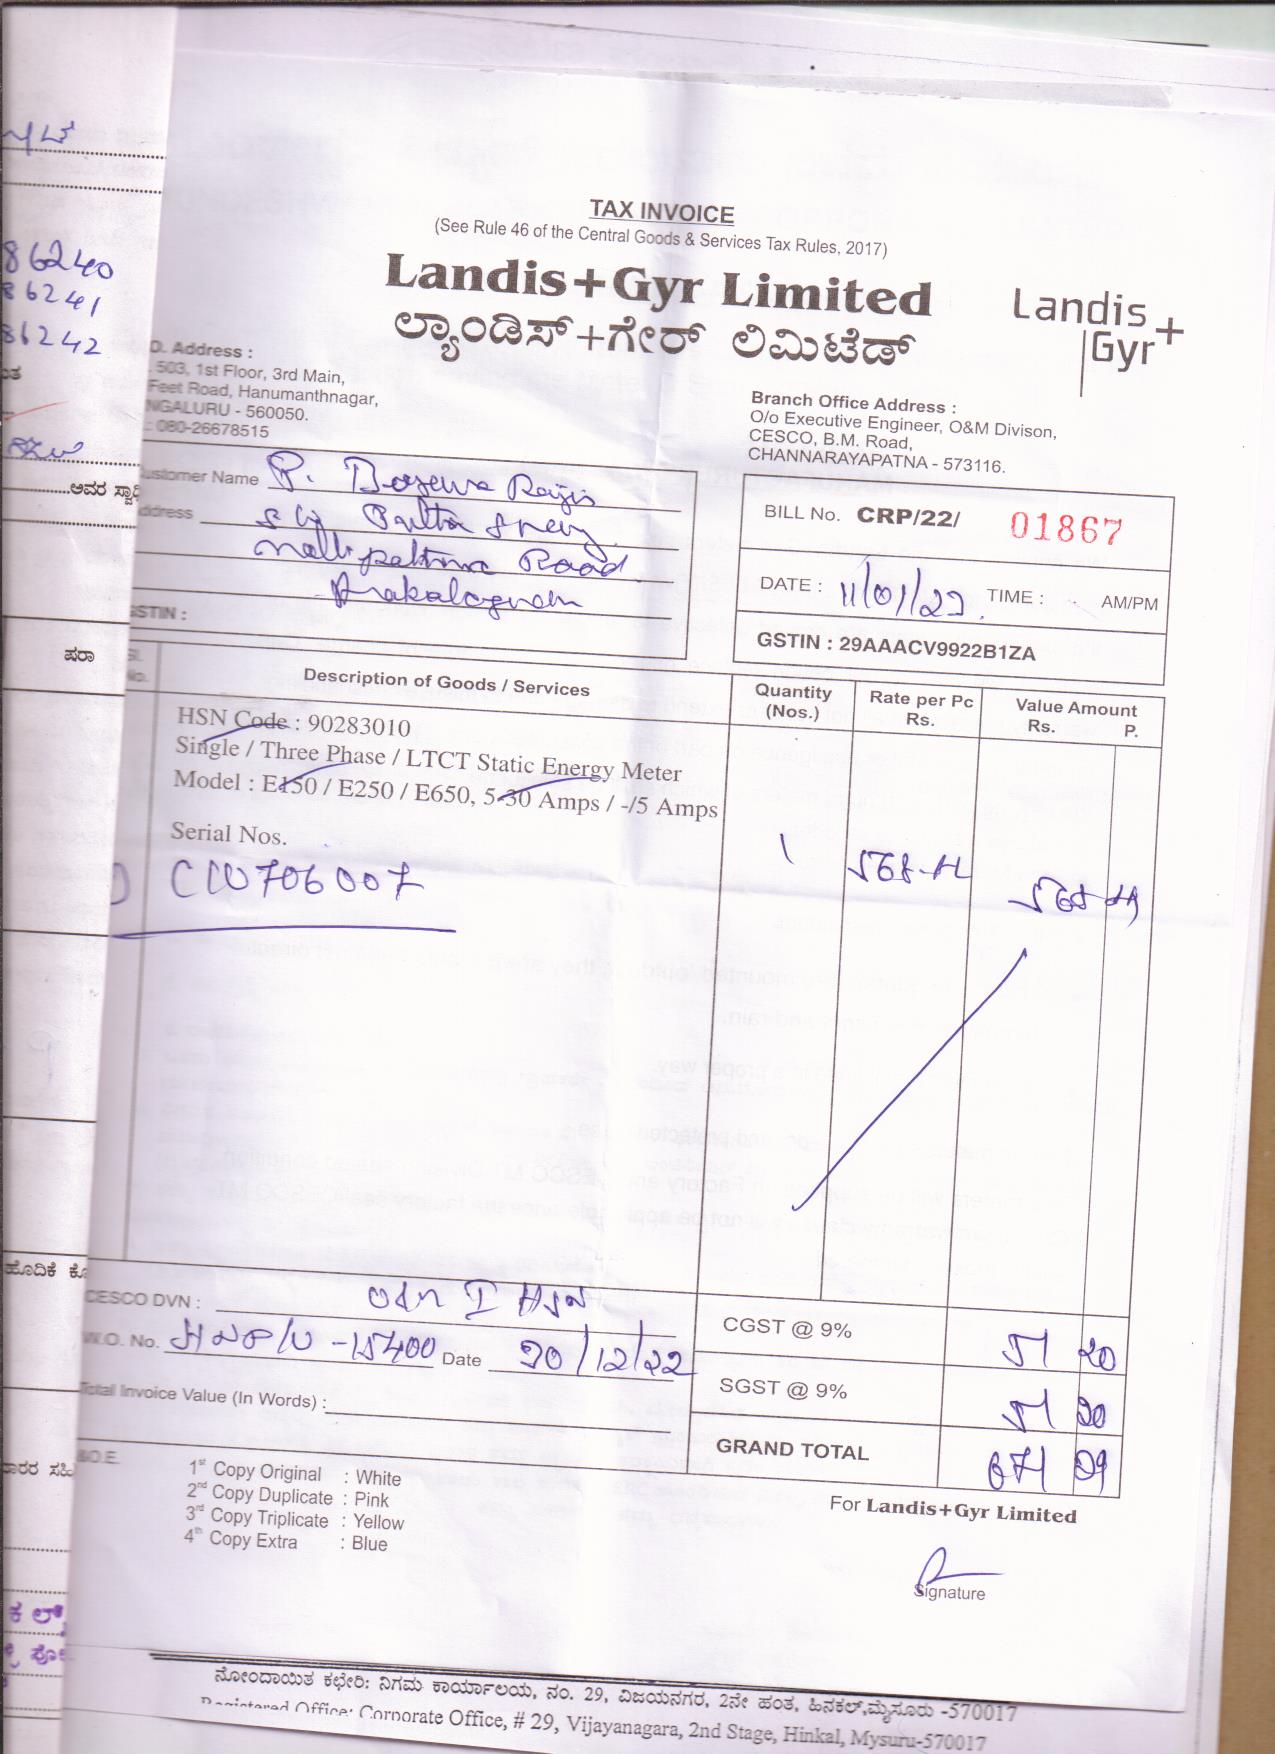 TAX INVOICE
(See Rule 46 of the Central Goods & Services Tax Rules, 2017)
Landis+Gyr Limited
ಲ್ಯಾಂಡಿಸ್+ಗೇರ್ ಲಿಮಿಟೆಡ್
Landis
Gyr+
D. Address :
503, 1st Floor, 3rd Main,
Feet Road, Hanumanthnagar,
NGALURU - 560050.
: 080-26678515
Branch Office Address :
O/o Executive Engineer, O&M Divison,
CESCO, B.M. Road,
CHANNARAYAPATNA - 573116.
86240
86241
86242
ustomer Name P.
ddress
Road
GSTIN :
BILL No. CRP/22/ 01867
DATE : 11/01/23 TIME : AM/PM
GSTIN : 29AAACV9922B1ZA
ಅವರ
ಪರಾ
Sl. No. Description of Goods / Services Quantity (Nos.) Rate per Pc Rs. Value Amount Rs. P.
HSN Code : 90283010
Single / Three Phase / LTCT Static Energy Meter
Model : E150 / E250 / E650, 5-30 Amps / -/5 Amps
Serial Nos.
1
706007
ಹೊದಿಕೆ ಕೊ
CESCO DVN : I HSN
W.O. No. -15400 Date 30/12/22
Total Invoice Value (In Words) :
CGST @ 9% 51 20
SGST @ 9% 51 20
GRAND TOTAL 671 29
&O.E.
1st Copy Original : White
2nd Copy Duplicate : Pink
3rd Copy Triplicate : Yellow
4th Copy Extra : Blue
For Landis+Gyr Limited
Signature
ನೋಂದಾಯಿತ ಕಛೇರಿ: ನಿಗಮ ಕಾರ್ಯಾಲಯ, ನಂ. 29, ವಿಜಯನಗರ, 2ನೇ ಹಂತ, ಹಿನಕಲ್,ಮೈಸೂರು -570017
Registered Office: Corporate Office, # 29, Vijayanagara, 2nd Stage, Hinkal, Mysuru-570017